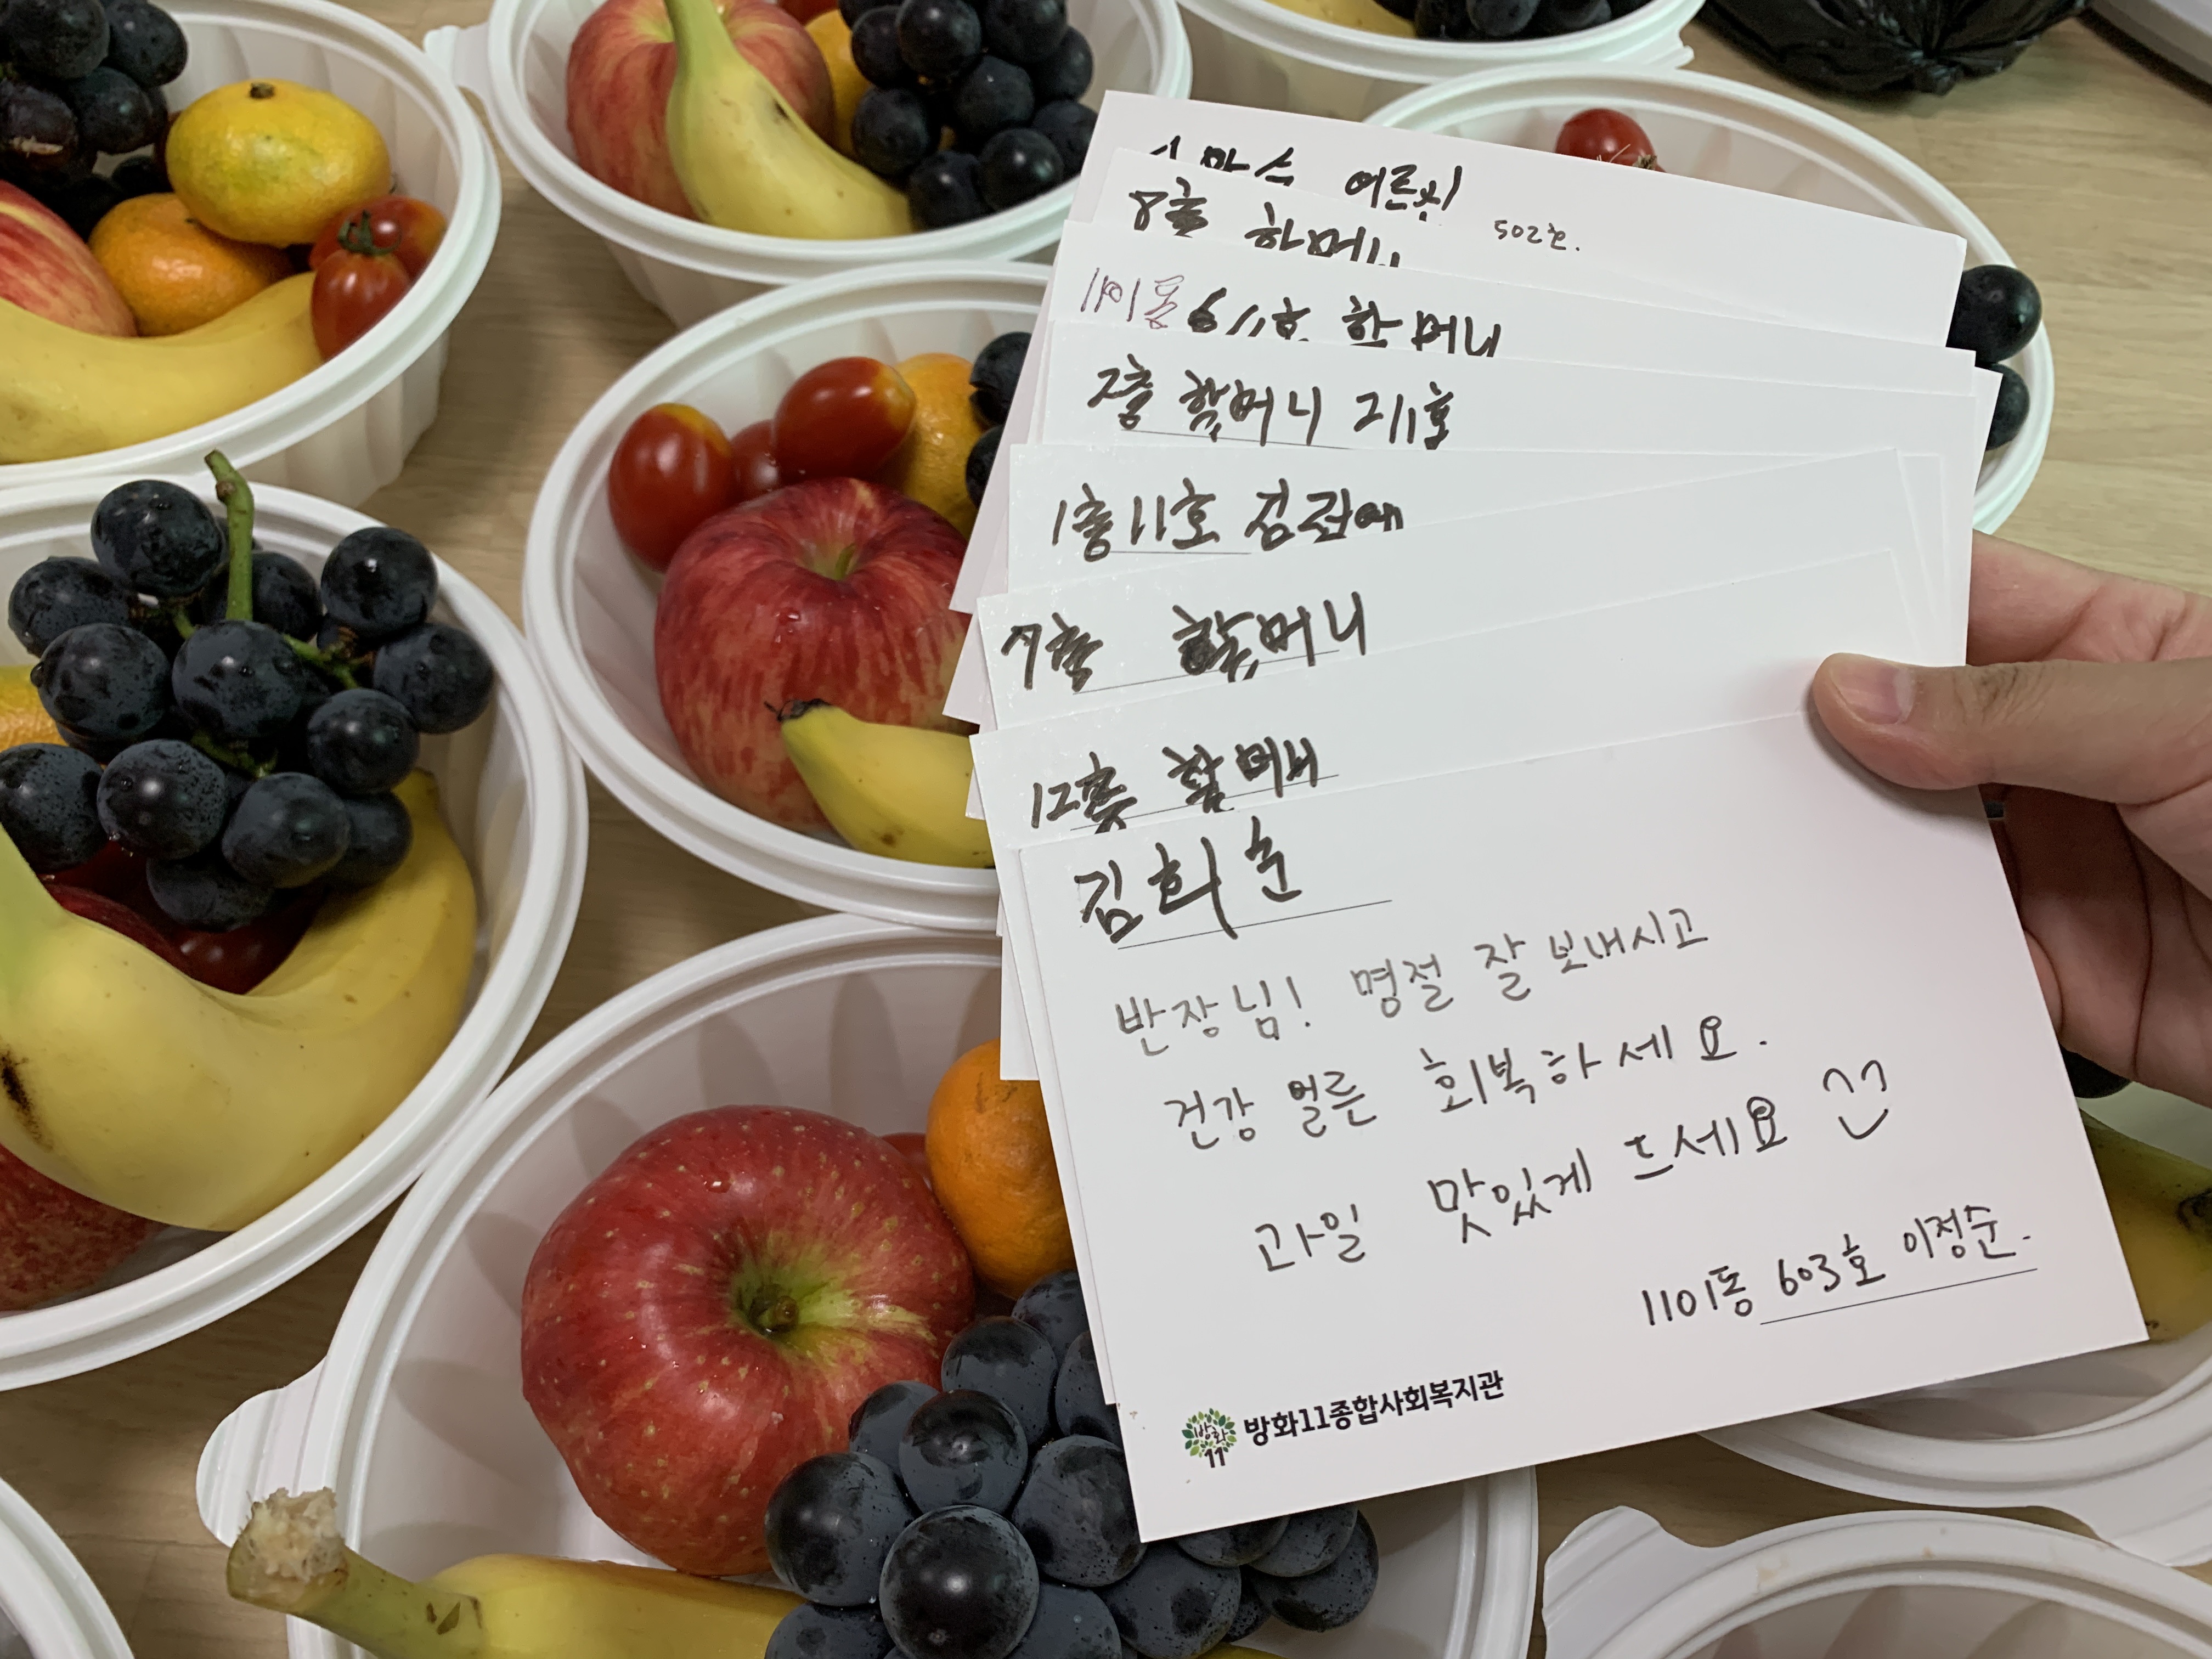 어르신
502호.
8층 할머니
1101동 611호 할머니
2층 할머니 211호
1층 11호 김
7층 할머니
12층 할머니
김희순
반장님! 명절 잘 보내시고
건강 얼른 회복하세요.
과일 맛있게 드세요
1101동 603호 이정순.
방화
11
방화11종합사회복지관